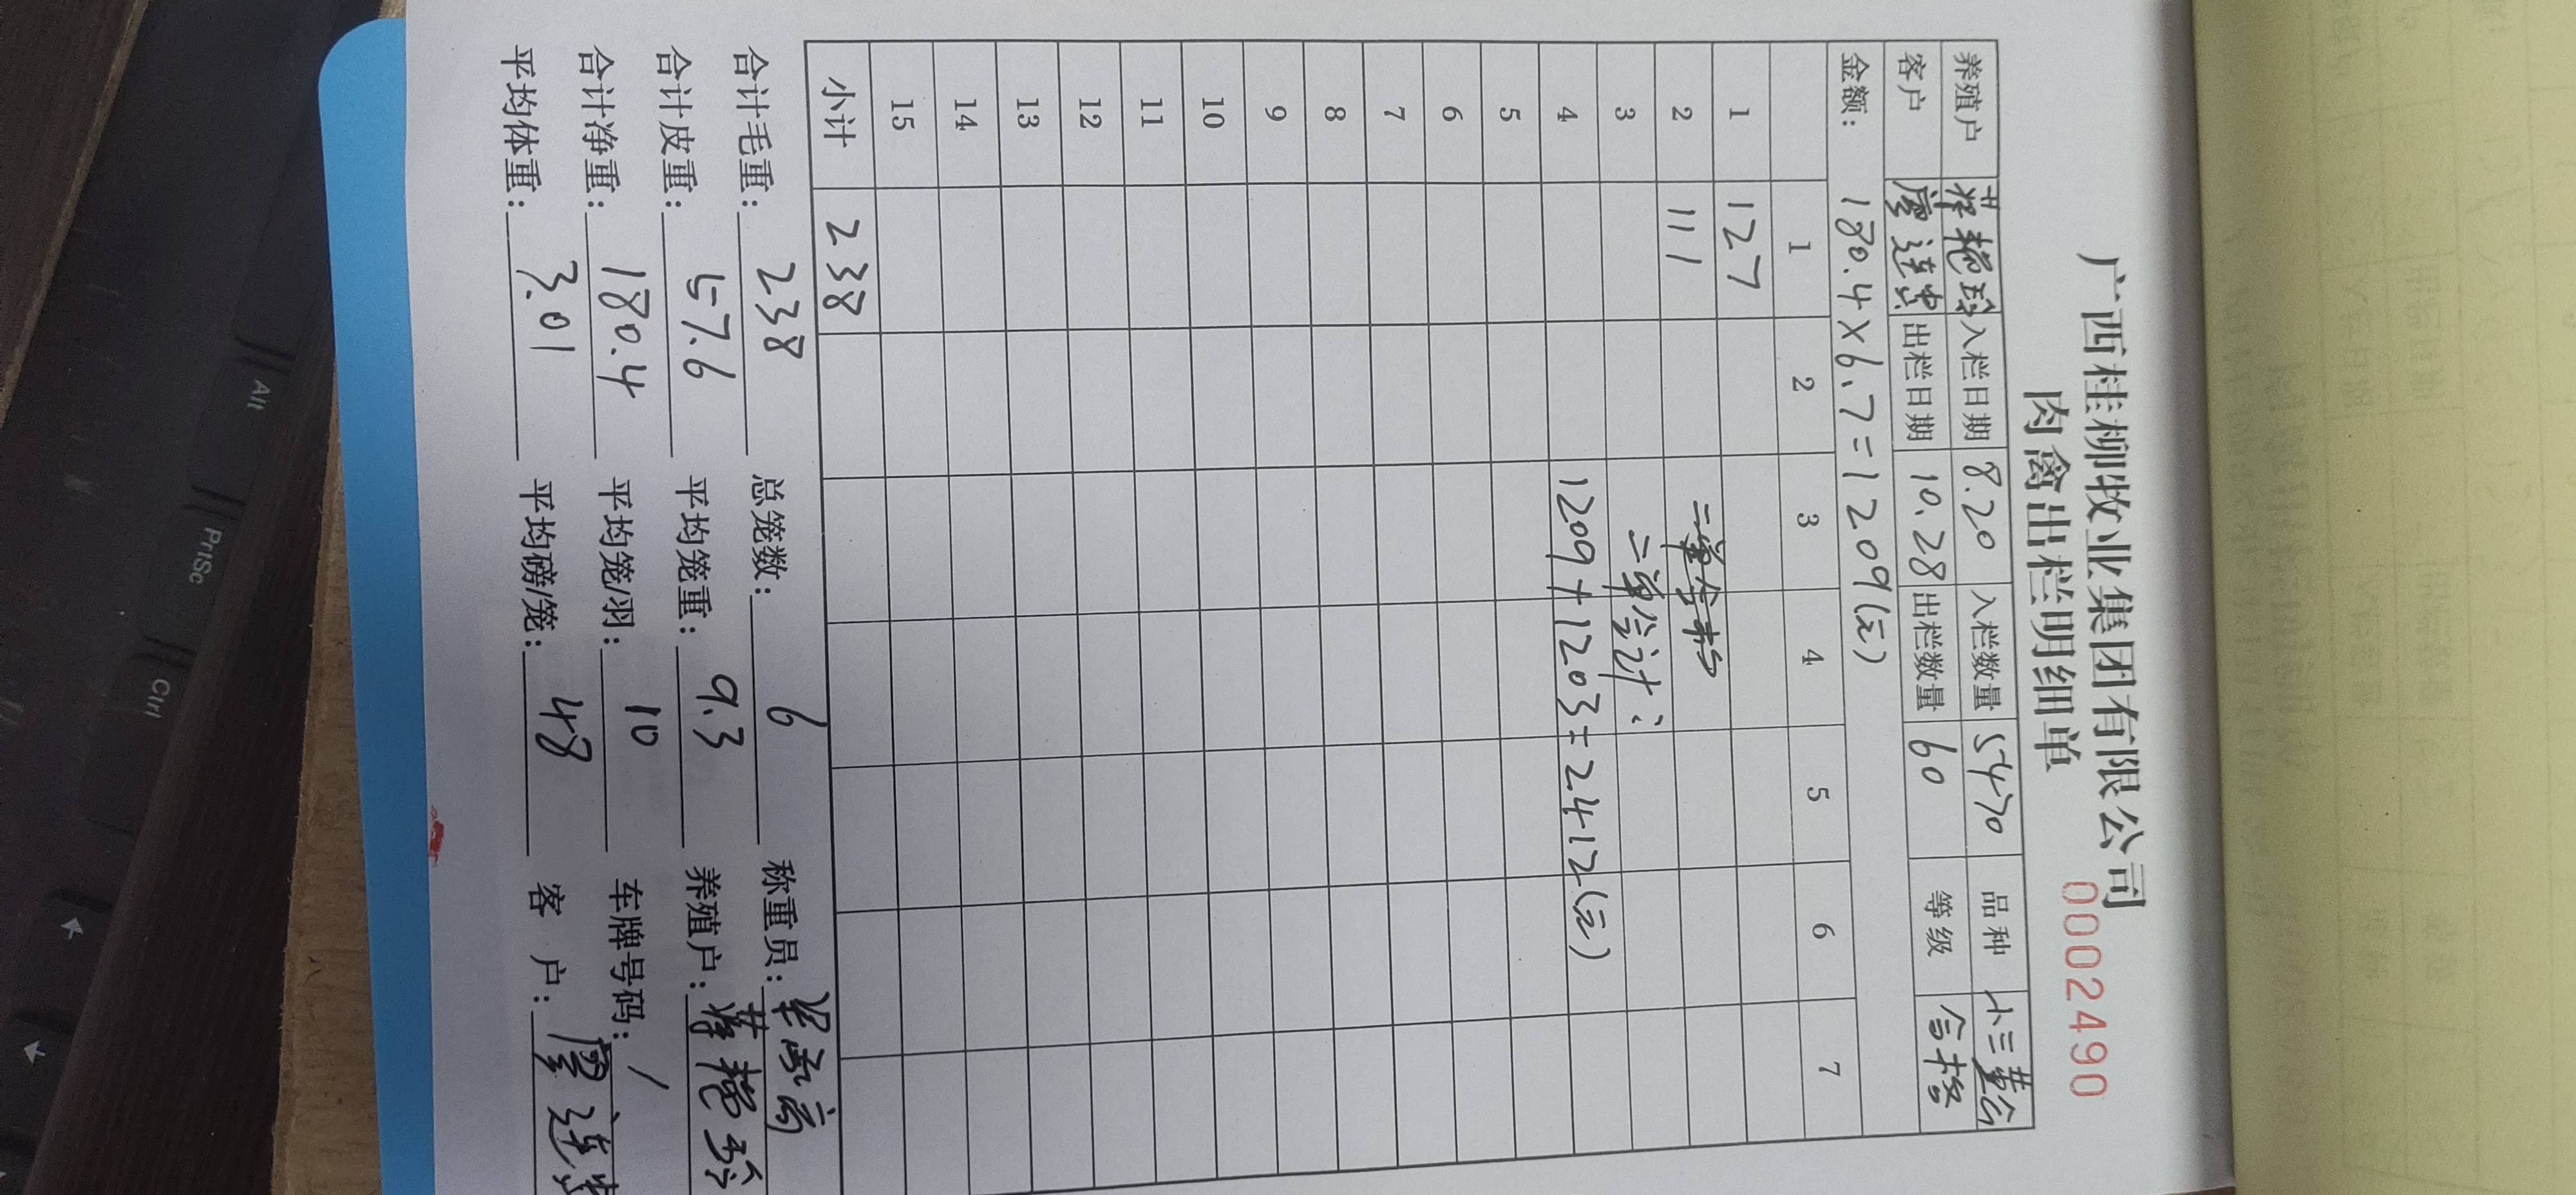 广西桂柳牧业集团有限公司
肉禽出栏明细单
00002490
养殖户 蒋艳玲 入栏日期 8.20 入栏数量 5470 品种 小三黄公
客户 廖连贵 出栏日期 10.28 出栏数量 60 等级 合格
金额: 180.4×6.7=1209(元)
1 2 3 4 5 6 7
1 127
2 111
3 二单合计:
4 1209+1203=2412(元)
5
6
7
8
9
10
11
12
13
14
15
小计 238
合计毛重: 238 总笼数: 6 称重员:
合计皮重: 57.6 平均笼重: 9.3 养殖户: 蒋艳玲
合计净重: 180.4 平均笼/羽: 10 车牌号码: /
平均体重: 3.01 平均磅/笼: 48 客户: 廖连贵
Alt
PrtSc
Ctrl